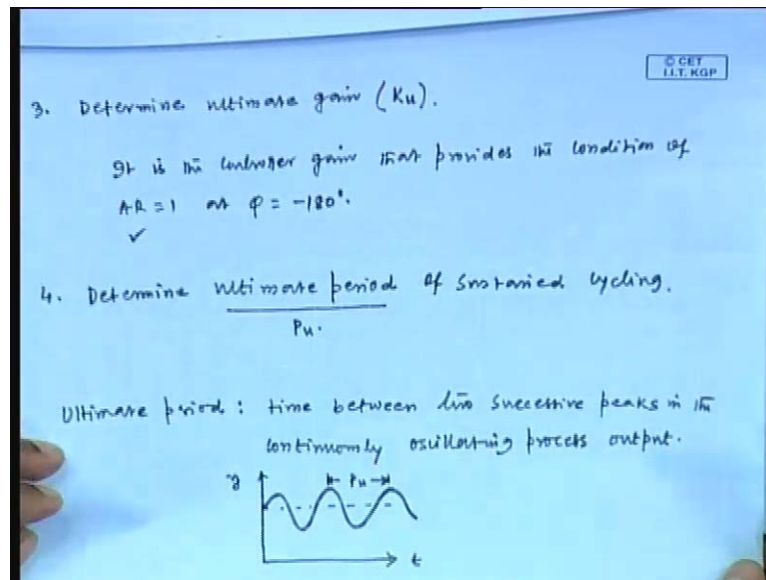 © CET
I.I.T. KGP
3. Determine ultimate gain (Ku).
It is the controller gain that provides the condition of
AR = 1 at φ = -180°.
✓
4. Determine ultimate period of sustained cycling.
Pu.
Ultimate period : time between two successive peaks in the
continuously oscillating process output.
y
Pu
t